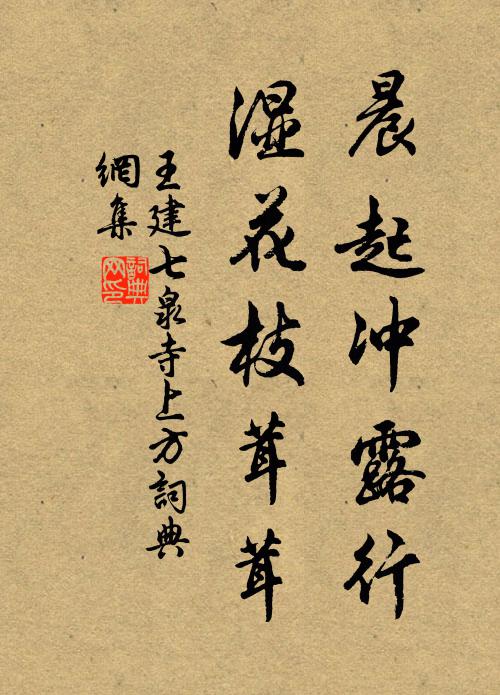 晨起冲露行
湿花枝茸茸
王建七泉寺上方詞典
網集
詞典
网印